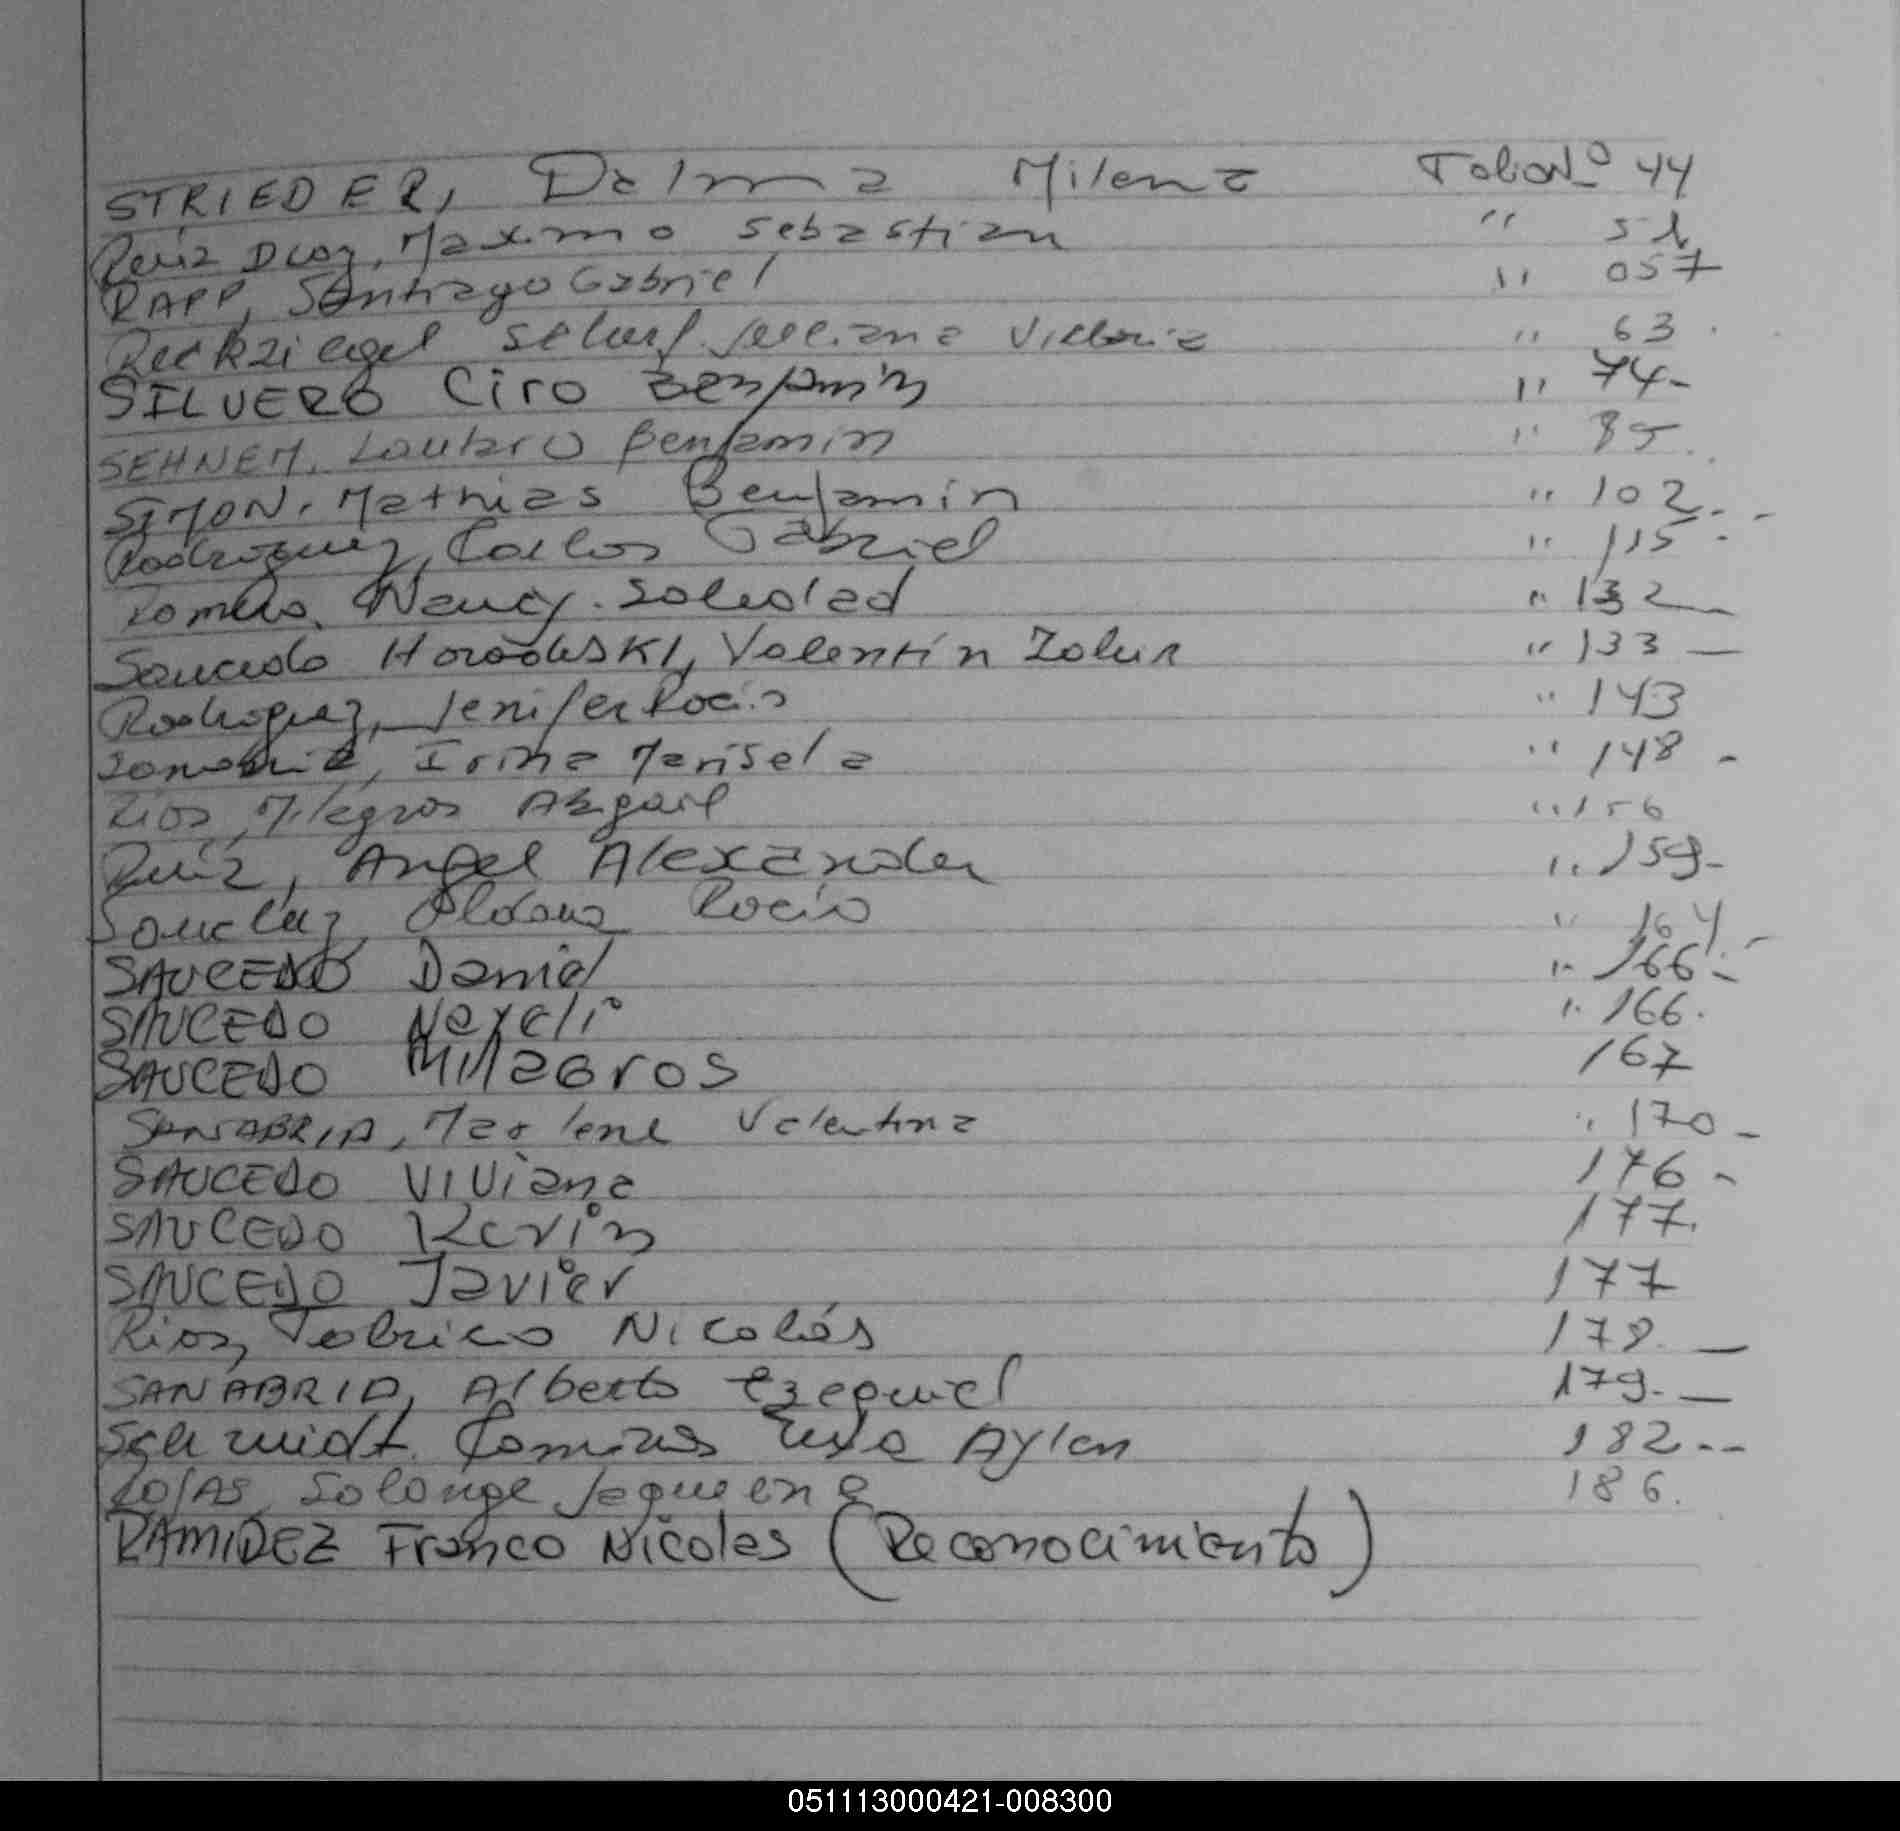 STRIEDER, Dalma Milena Folio Nº 44
Ruiz Diaz, Maximo Sebastian " 51
RAPP, Santiago Gabriel " 057
Reckziegel Juliana Victoria " 63
SILVERO Ciro Benjamín " 74-
SEHNEM, Lautaro Benjamin " 85
SIMON, Mathias Benjamin " 102
Rodriguez, Carlos Gabriel " 115
Romero, Nancy Soledad " 132
Saucedo HorodesKI, Valentín " 133
Rodriguez, Jenifer Rocio " 143
Irina Marisela " 148
Rios, Milagros Abigail " 156
Ruiz, Angel Alexander " 159-
Sanchez Aldana Rocío " 164
SAUCEDO Daniel " 166
SAUCEDO Nayeli " 166.
SAUCEDO Milagros 167
SANABRIA, Marlene Valentina " 170
SAUCEDO Viviana 176
SAUCEDO Kevin 177.
SAUCEDO Javier 177
Rios, Fabricio Nicolás 179
SANABRIA, Alberto Ezequiel 179.
Schmidt Aylen 182
ROJAS, Solange Jaqueena 186.
RAMIREZ Franco Nicolas (Reconocimiento)
051113000421-008300